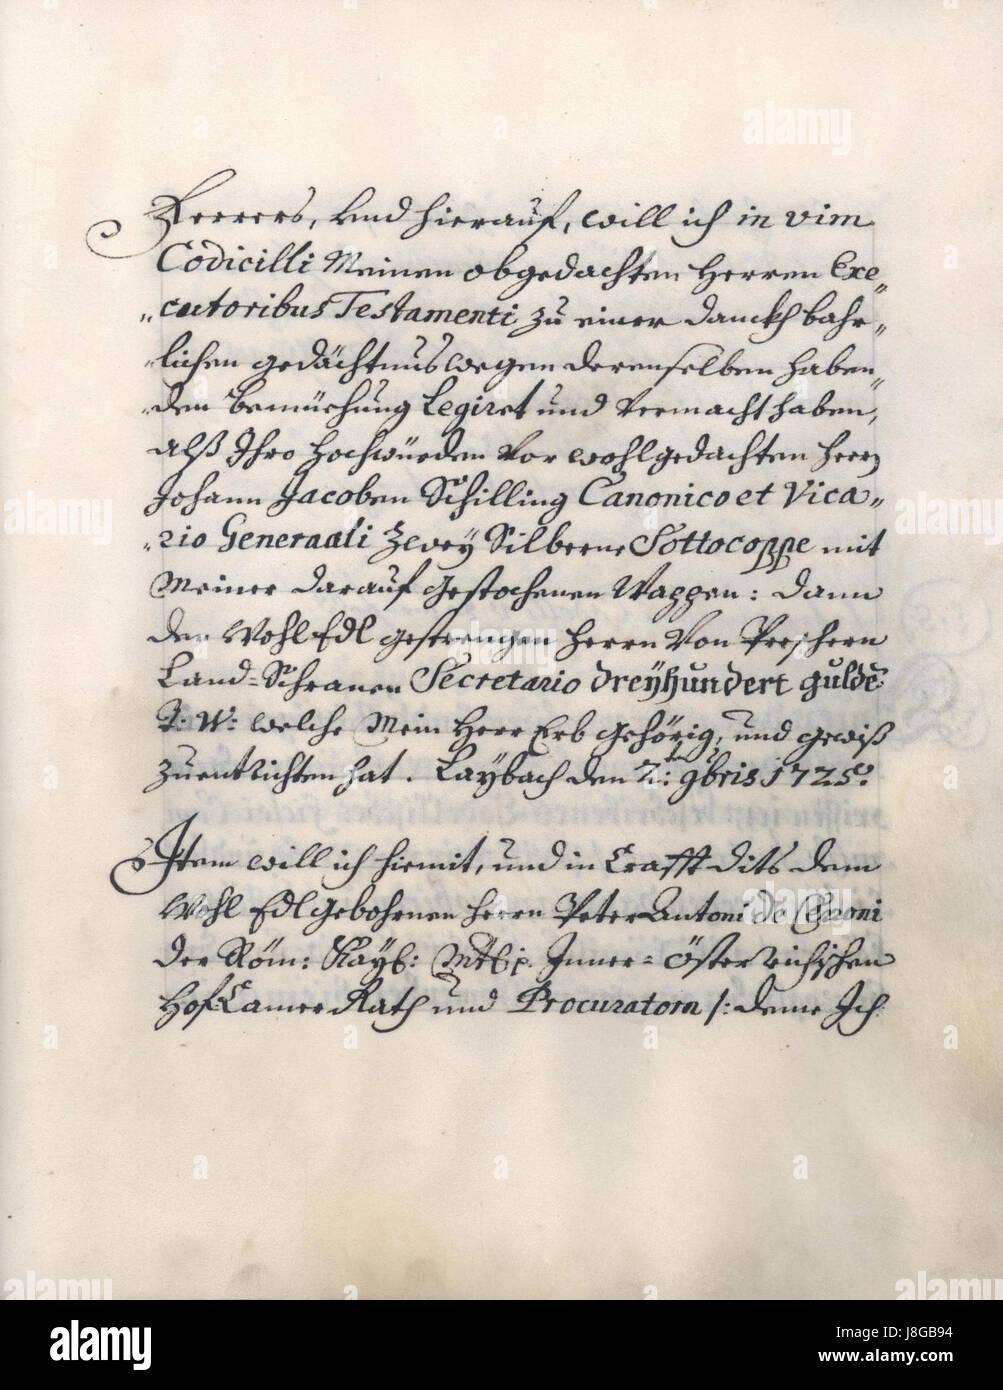 Ferrers, und hierauf, will ich in vim
Codicilli Meinen obgedachten Herren Exe„
„cutoribus Testamenti zu einer danckhbahr„
„lichen gedächtnus wegen derenselben haben„
„den bemüehung Legiret und Vermacht haben,
alß Ihro Hochwürden Vor wohlgedachten Herrn
Johann Jacoben Schilling Canonico et Vica„
„rio Generaali Zwey Silberne Sottocoppe mit
Meiner darauf gestochenen Wappen: dann
den Wohl Edl gestrengen Herrn Von Preschern
Land=Schranen Secretario dreyhundert gulde
T: W: welche Mein Herr Erb gehörig, und gewiß
zuentrichten hat. Laybach den 2.ten 9bris 1725.
Item will ich hiemit, und in Crafft dits dem
Wohl Edlgebohrnen Herrn Peter Antoni de
der Röm: Kayß: Inner=österreichischen
HofCamer Rath und Procuratorn /: deme Ich
alamy
Image ID: J8GB94
www.alamy.com